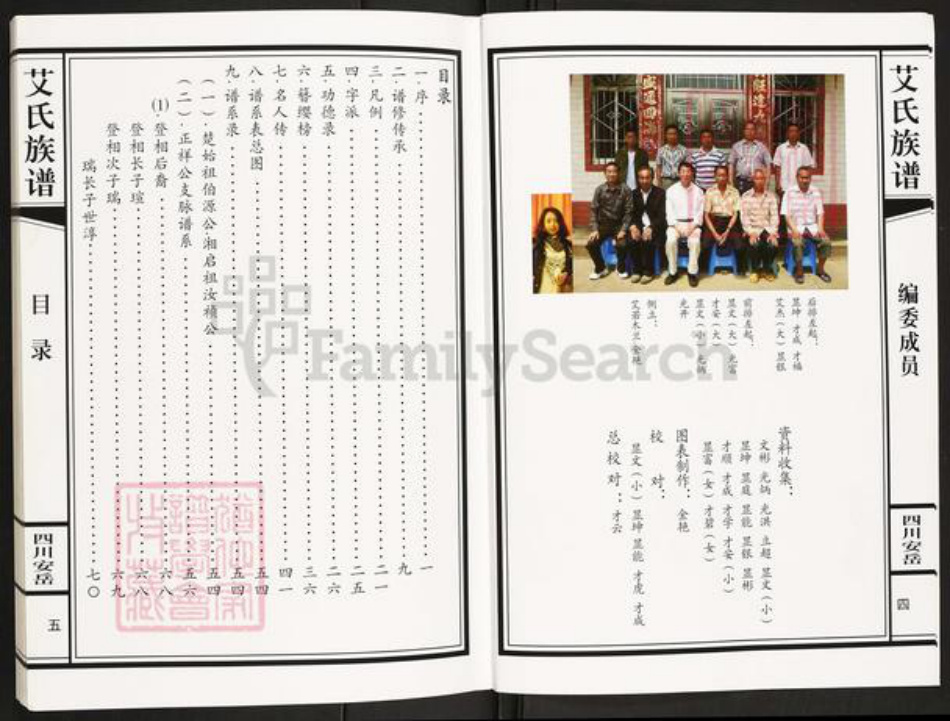 艾氏族谱
编委成员
四川安岳
四
盛通四海
后排左起：
显坤 才成 才福
艾杰（大） 显银
前排左起：
显文（大） 光富
才安（大）
显文（小） 光炳
光开
侧立：
艾若木兰 金艳
资料收集：
文彬 光炳 光洪 立超 显文（小）
显坤 显庭 显能 显银 显彬
才顺 才成 才学 才安（小）
显富（女） 才碧（女）
图表制作：金艳
校对：
显文（小） 显坤 显能 才虎 才成
总校对：才云
FamilySearch
目录
一·序 一
二·谱修传承 九
三·凡例 二一
四·字派 二五
五·功德录 二六
六·簪缨榜 三六
七·名人传 四一
八·谱系表总图 五四
九·谱系录 五四
（一）·楚始祖伯源公湘启祖汝祯公 五四
（二）·正祥公支脉谱系 五六
⑴·登相后裔 六八
登相长子瑄 六八
登相次子瑞 六九
瑞长子世淳 七〇
艾氏族谱
目录
四川安岳
五